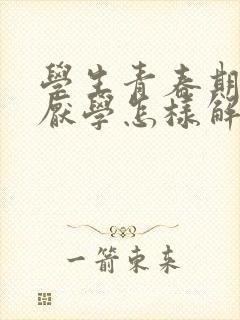 學生青春期
厭學怎樣解
一箭東來